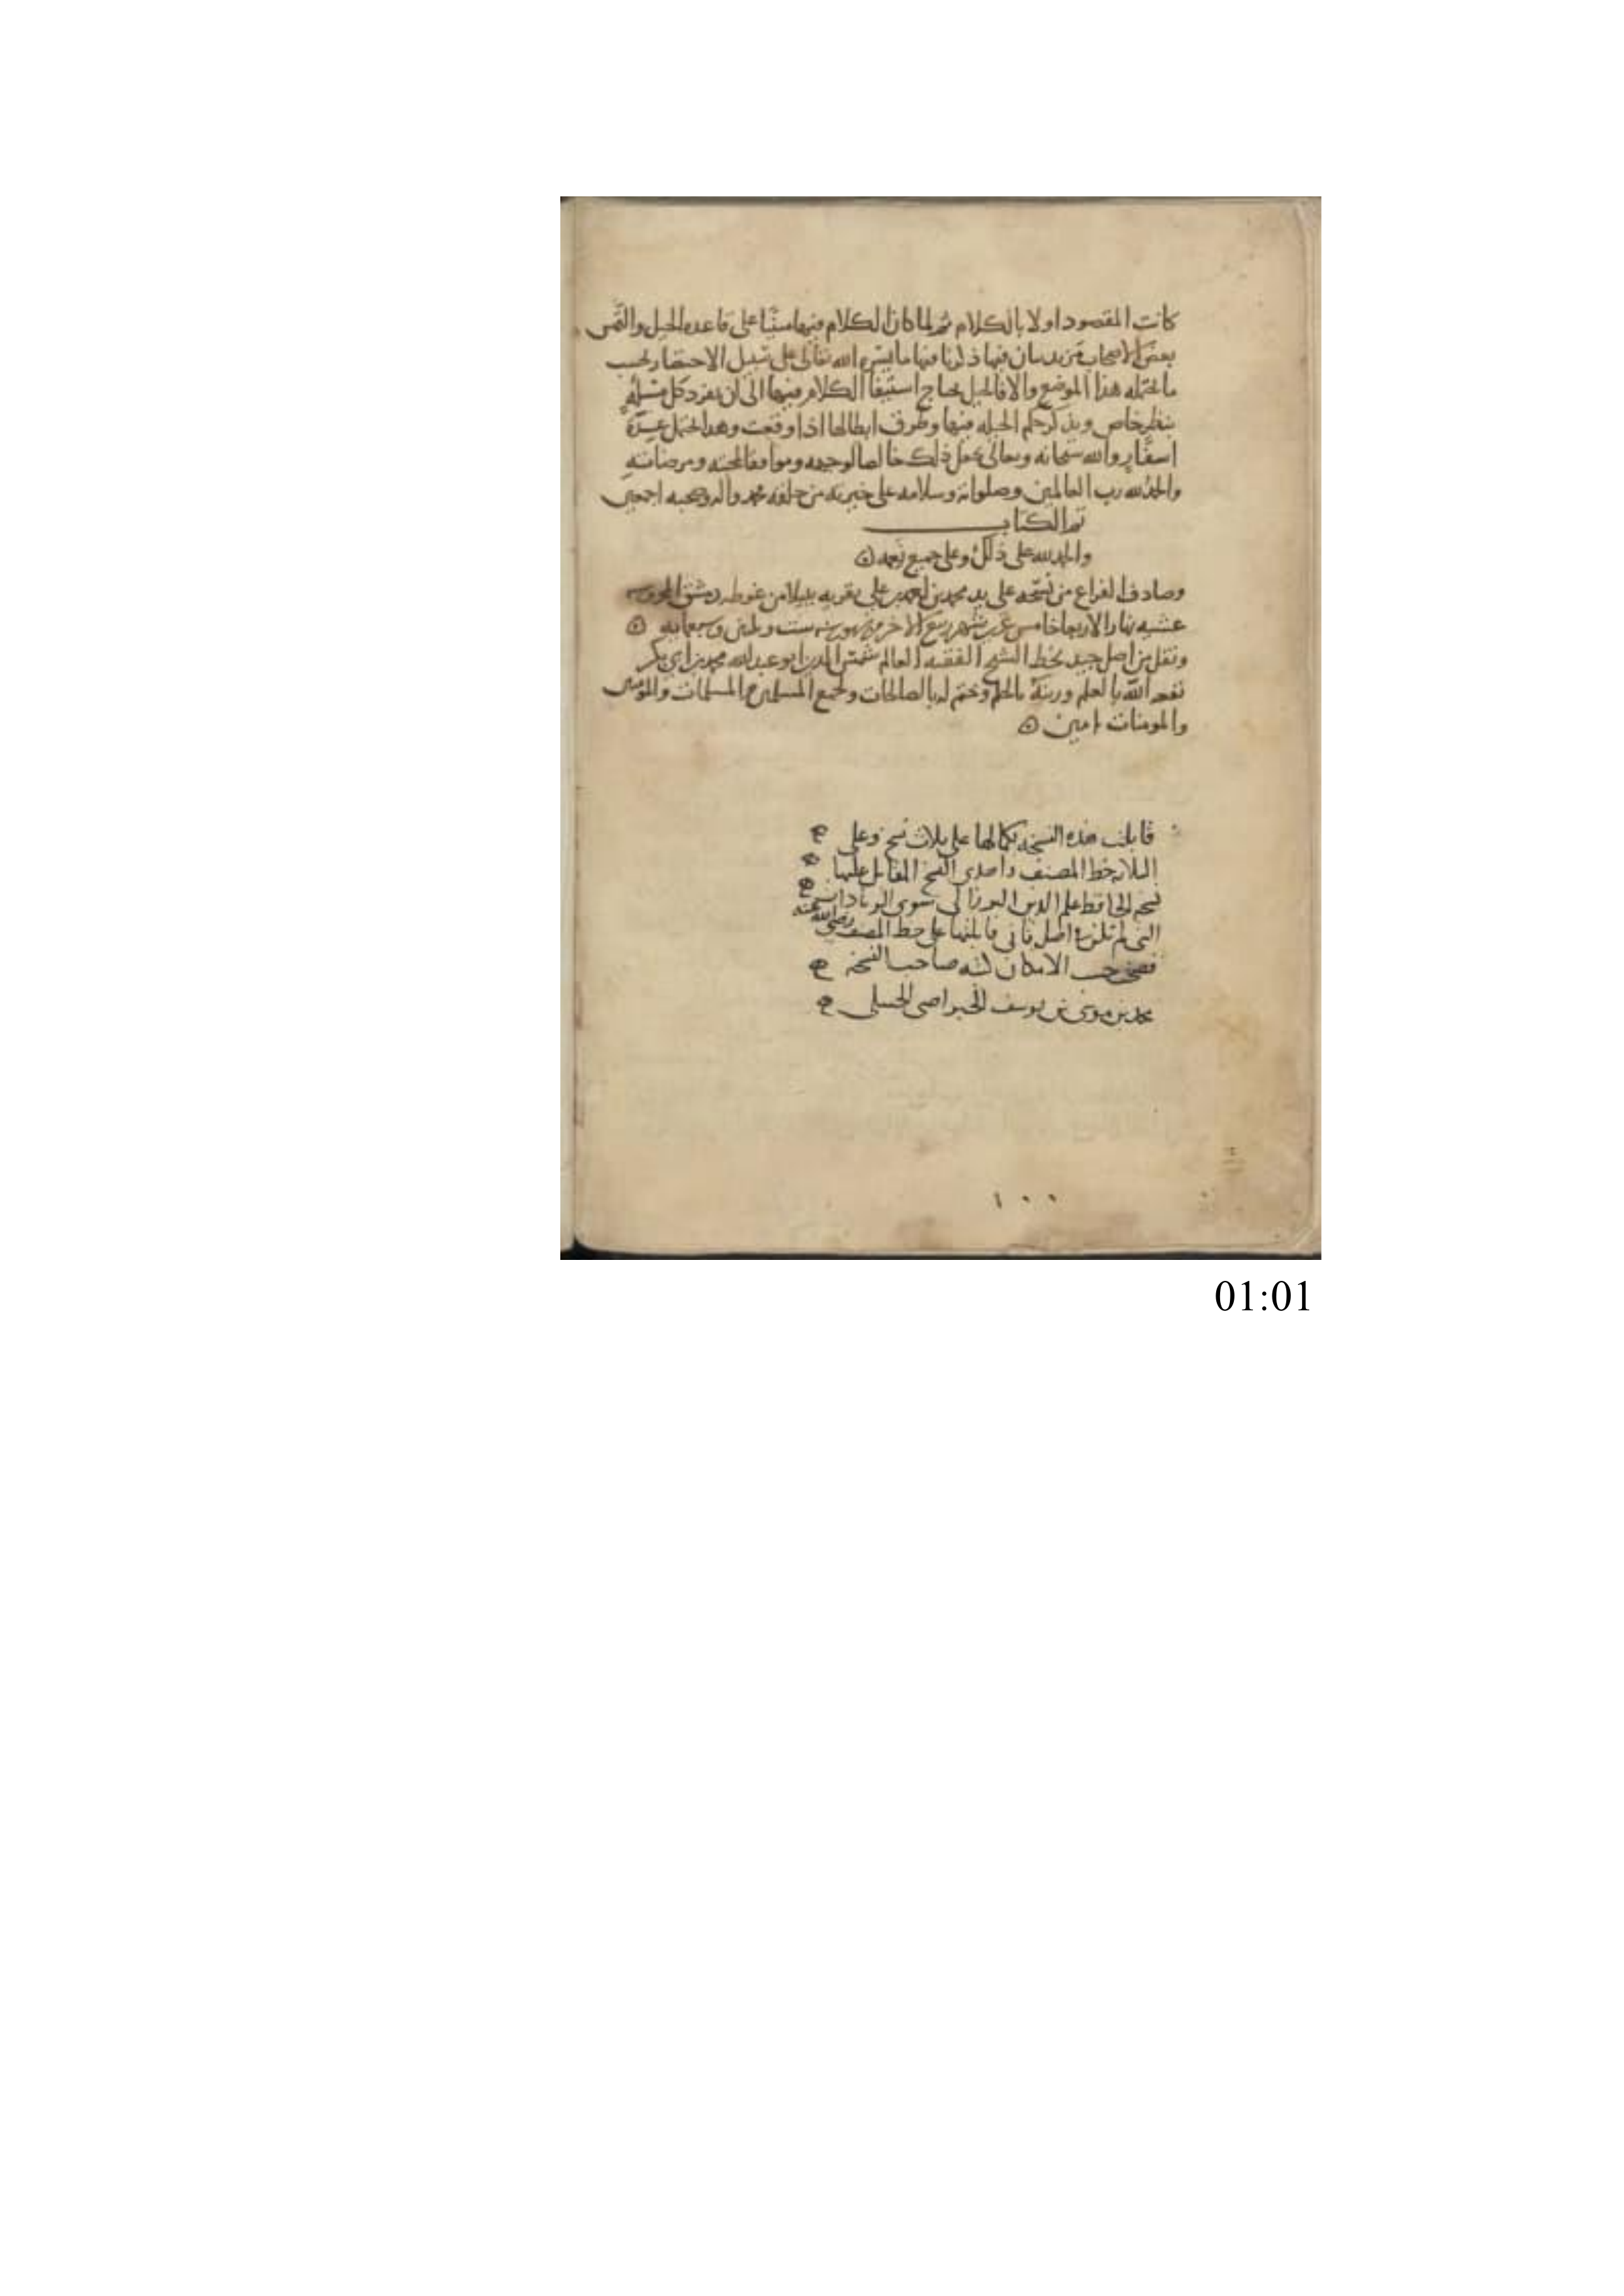 كانت المقصود اولا بالكلام ثم لما كان الكلام فيها مبنيا على قاعده الحيل والتمس
بعض الاصحاب مزيد بيان فيها ذكرنا فيها ما يسره الله تعالى على سبيل الاختصار بحسب
ما يحتمله هذا الموضع والا فالحيل يحتاج استيفا الكلام فيها الى ان يفرد كل مسئلة
بنظر خاص ويذكر حكم الحيله فيها وطرق ابطالها اذا وقعت وهذا يحتمل عدة
اسفار والله سبحانه وتعالى يجعل ذلك خالصا لوجهه وموافقا لمحبته ومرضاته
والحمد لله رب العالمين وصلواته وسلامه على خيرته من خلقه محمد واله وصحبه اجمعين
تم الكتاب
والحمد لله على ذلك وعلى جميع نعمه
وصادف الفراغ من نسخه على يد محمد بن على بقريه ببيلا من غوطه دمشق المحروسه
عشيه نهار الاربعا خامس شهر ربيع الاخر من شهور سنه ست وثلثين وسبعمايه
ونقل من اصل جيد بخط الشيخ الفقيه العالم شمس الدين ابو عبد الله محمد بن ابى بكر
نفعه الله بالعلم وزينه بالحلم وختم له بالصالحات ولجميع المسلمين والمسلمات والمومنين
والمومنات امين
قابلت هذه النسخه بكمالها على ثلاث نسخ وعلى
الثلاثه خط المصنف واحدى النسخ المقابل عليها
نسخه الحافظ علم الدين البرزالى سوى الزيادات
التى لم تكن فى اصل ثانى قابلتها على خط المصنف رضى الله عنه
فصح حسب الامكان كتبه صاحب النسخه
محمد بن موسى بن يوسف الحنبلى
١٠٠
01:01